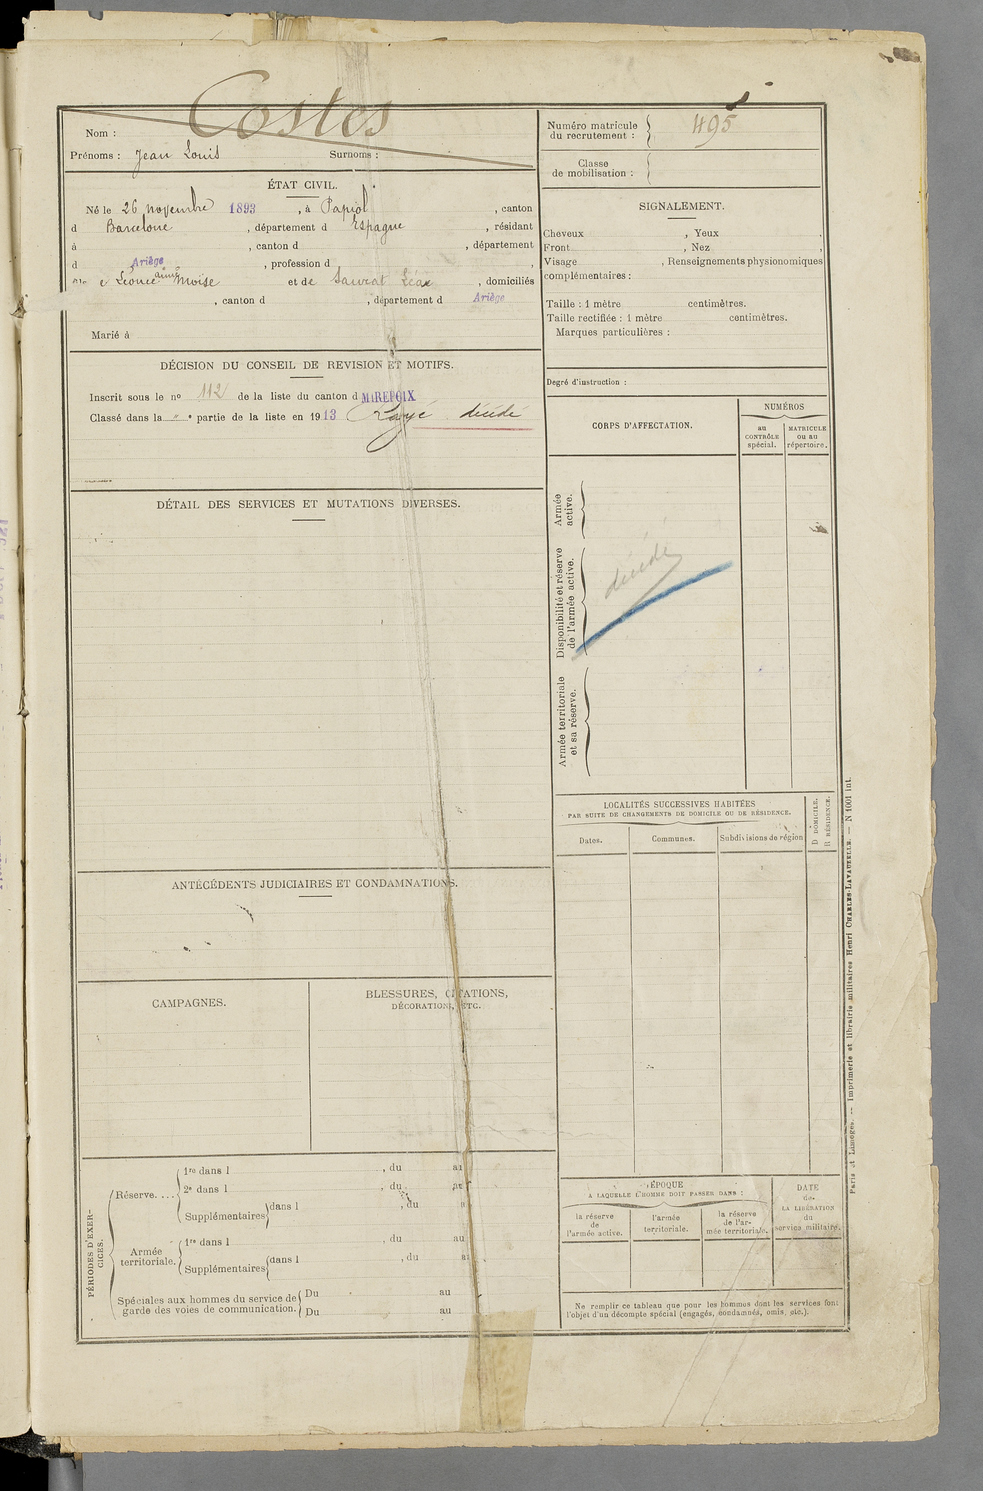 Costes
Nom :
Prénoms : Jean Louis Surnoms :
ÉTAT CIVIL.
Né le 26 novembre 1893, à Papiol, canton
d Barcelone, département d Espagne, résidant
à , canton d , département
d Ariège, profession d ,
e Léonce aimé Moïse et de Saurat Léae, domiciliés
, canton d , département d Ariège
Marié à
DÉCISION DU CONSEIL DE REVISION ET MOTIFS.
Inscrit sous le no 112 de la liste du canton d MIREPOIX
Classé dans la " e partie de la liste en 1913 Rayé décédé
DÉTAIL DES SERVICES ET MUTATIONS DIVERSES.
ANTÉCÉDENTS JUDICIAIRES ET CONDAMNATIONS.
CAMPAGNES.
BLESSURES, CITATIONS,
DÉCORATIONS, ETC.
PÉRIODES D'EXER-
CICES.
Réserve....
1re dans l , du au
2e dans l , du au
Supplémentaires dans l , du a
Armée
territoriale.
1re dans l , du au
Supplémentaires dans l , du a
Spéciales aux hommes du service de
garde des voies de communication.
Du au
Du au
Numéro matricule
du recrutement : 495
Classe
de mobilisation :
SIGNALEMENT.
Cheveux , Yeux ,
Front , Nez ,
Visage , Renseignements physionomiques
complémentaires :
Taille : 1 mètre centimètres.
Taille rectifiée : 1 mètre centimètres.
Marques particulières :
Degré d'instruction :
CORPS D'AFFECTATION.
NUMÉROS
au
CONTRÔLE
spécial.
MATRICULE
ou au
répertoire.
Armée
active.
Disponibilité et réserve
de l'armée active.
décédé
Armée territoriale
et sa réserve.
LOCALITÉS SUCCESSIVES HABITÉES
PAR SUITE DE CHANGEMENTS DE DOMICILE OU DE RÉSIDENCE.
Dates. Communes. Subdivisions de région
D DOMICILE.
R RÉSIDENCE.
ÉPOQUE
A LAQUELLE L'HOMME DOIT PASSER DANS :
la réserve
de
l'armée active.
l'armée
territoriale.
la réserve
de l'ar-
mée territoriale.
DATE
de
LA LIBÉRATION
du
service militaire.
Ne remplir ce tableau que pour les hommes dont les services font
l'objet d'un décompte spécial (engagés, condamnés, omis, etc.).
Paris et Limoges. — Imprimerie et librairie militaires Henri CHARLES-LAVAUZELLE. — N 1001 int.